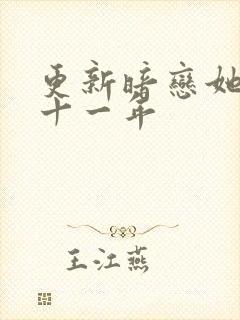 更新暗戀她
十一年
王江燕